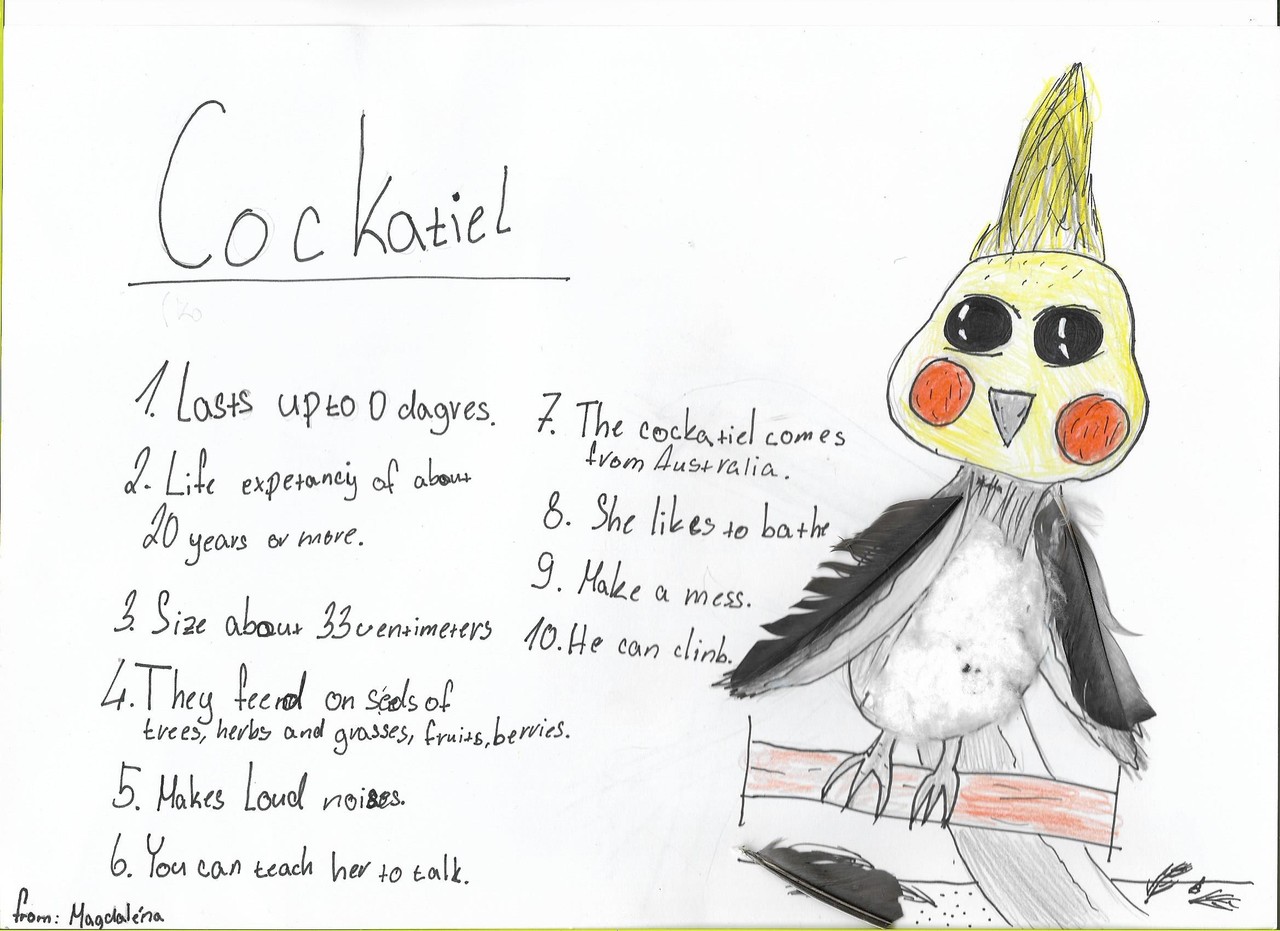 Cockatiel
1. Lasts up to 0 dagres.
2. Life expetanciy of about
20 years or more.
3. Size about 33 centimeters
4. They feend on seeds of
trees, herbs and grasses, fruits, berries.
5. Makes Loud noises.
6. You can teach her to talk.
7. The cockatiel comes
from Australia.
8. She likes to bathe
9. Make a mess.
10. He can climb.
from: Magdaléna